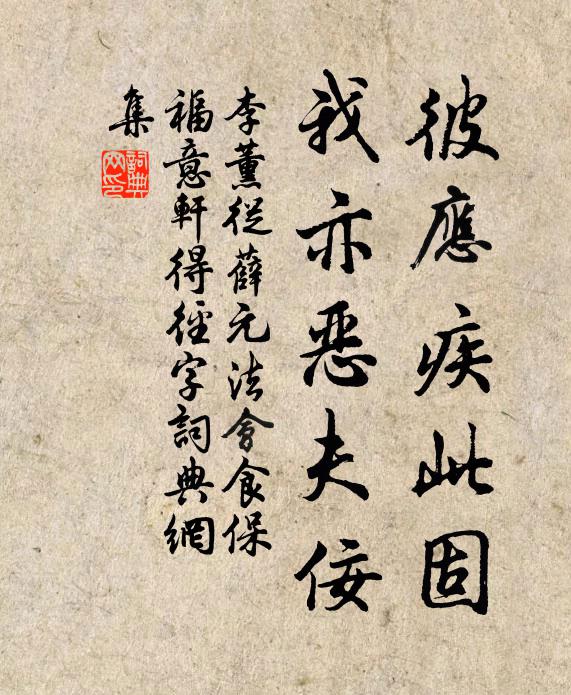 彼應疾此固
我亦惡夫佞
李薰從薛元法會食保
福意軒得徑字詞典網
集
詞典
网印